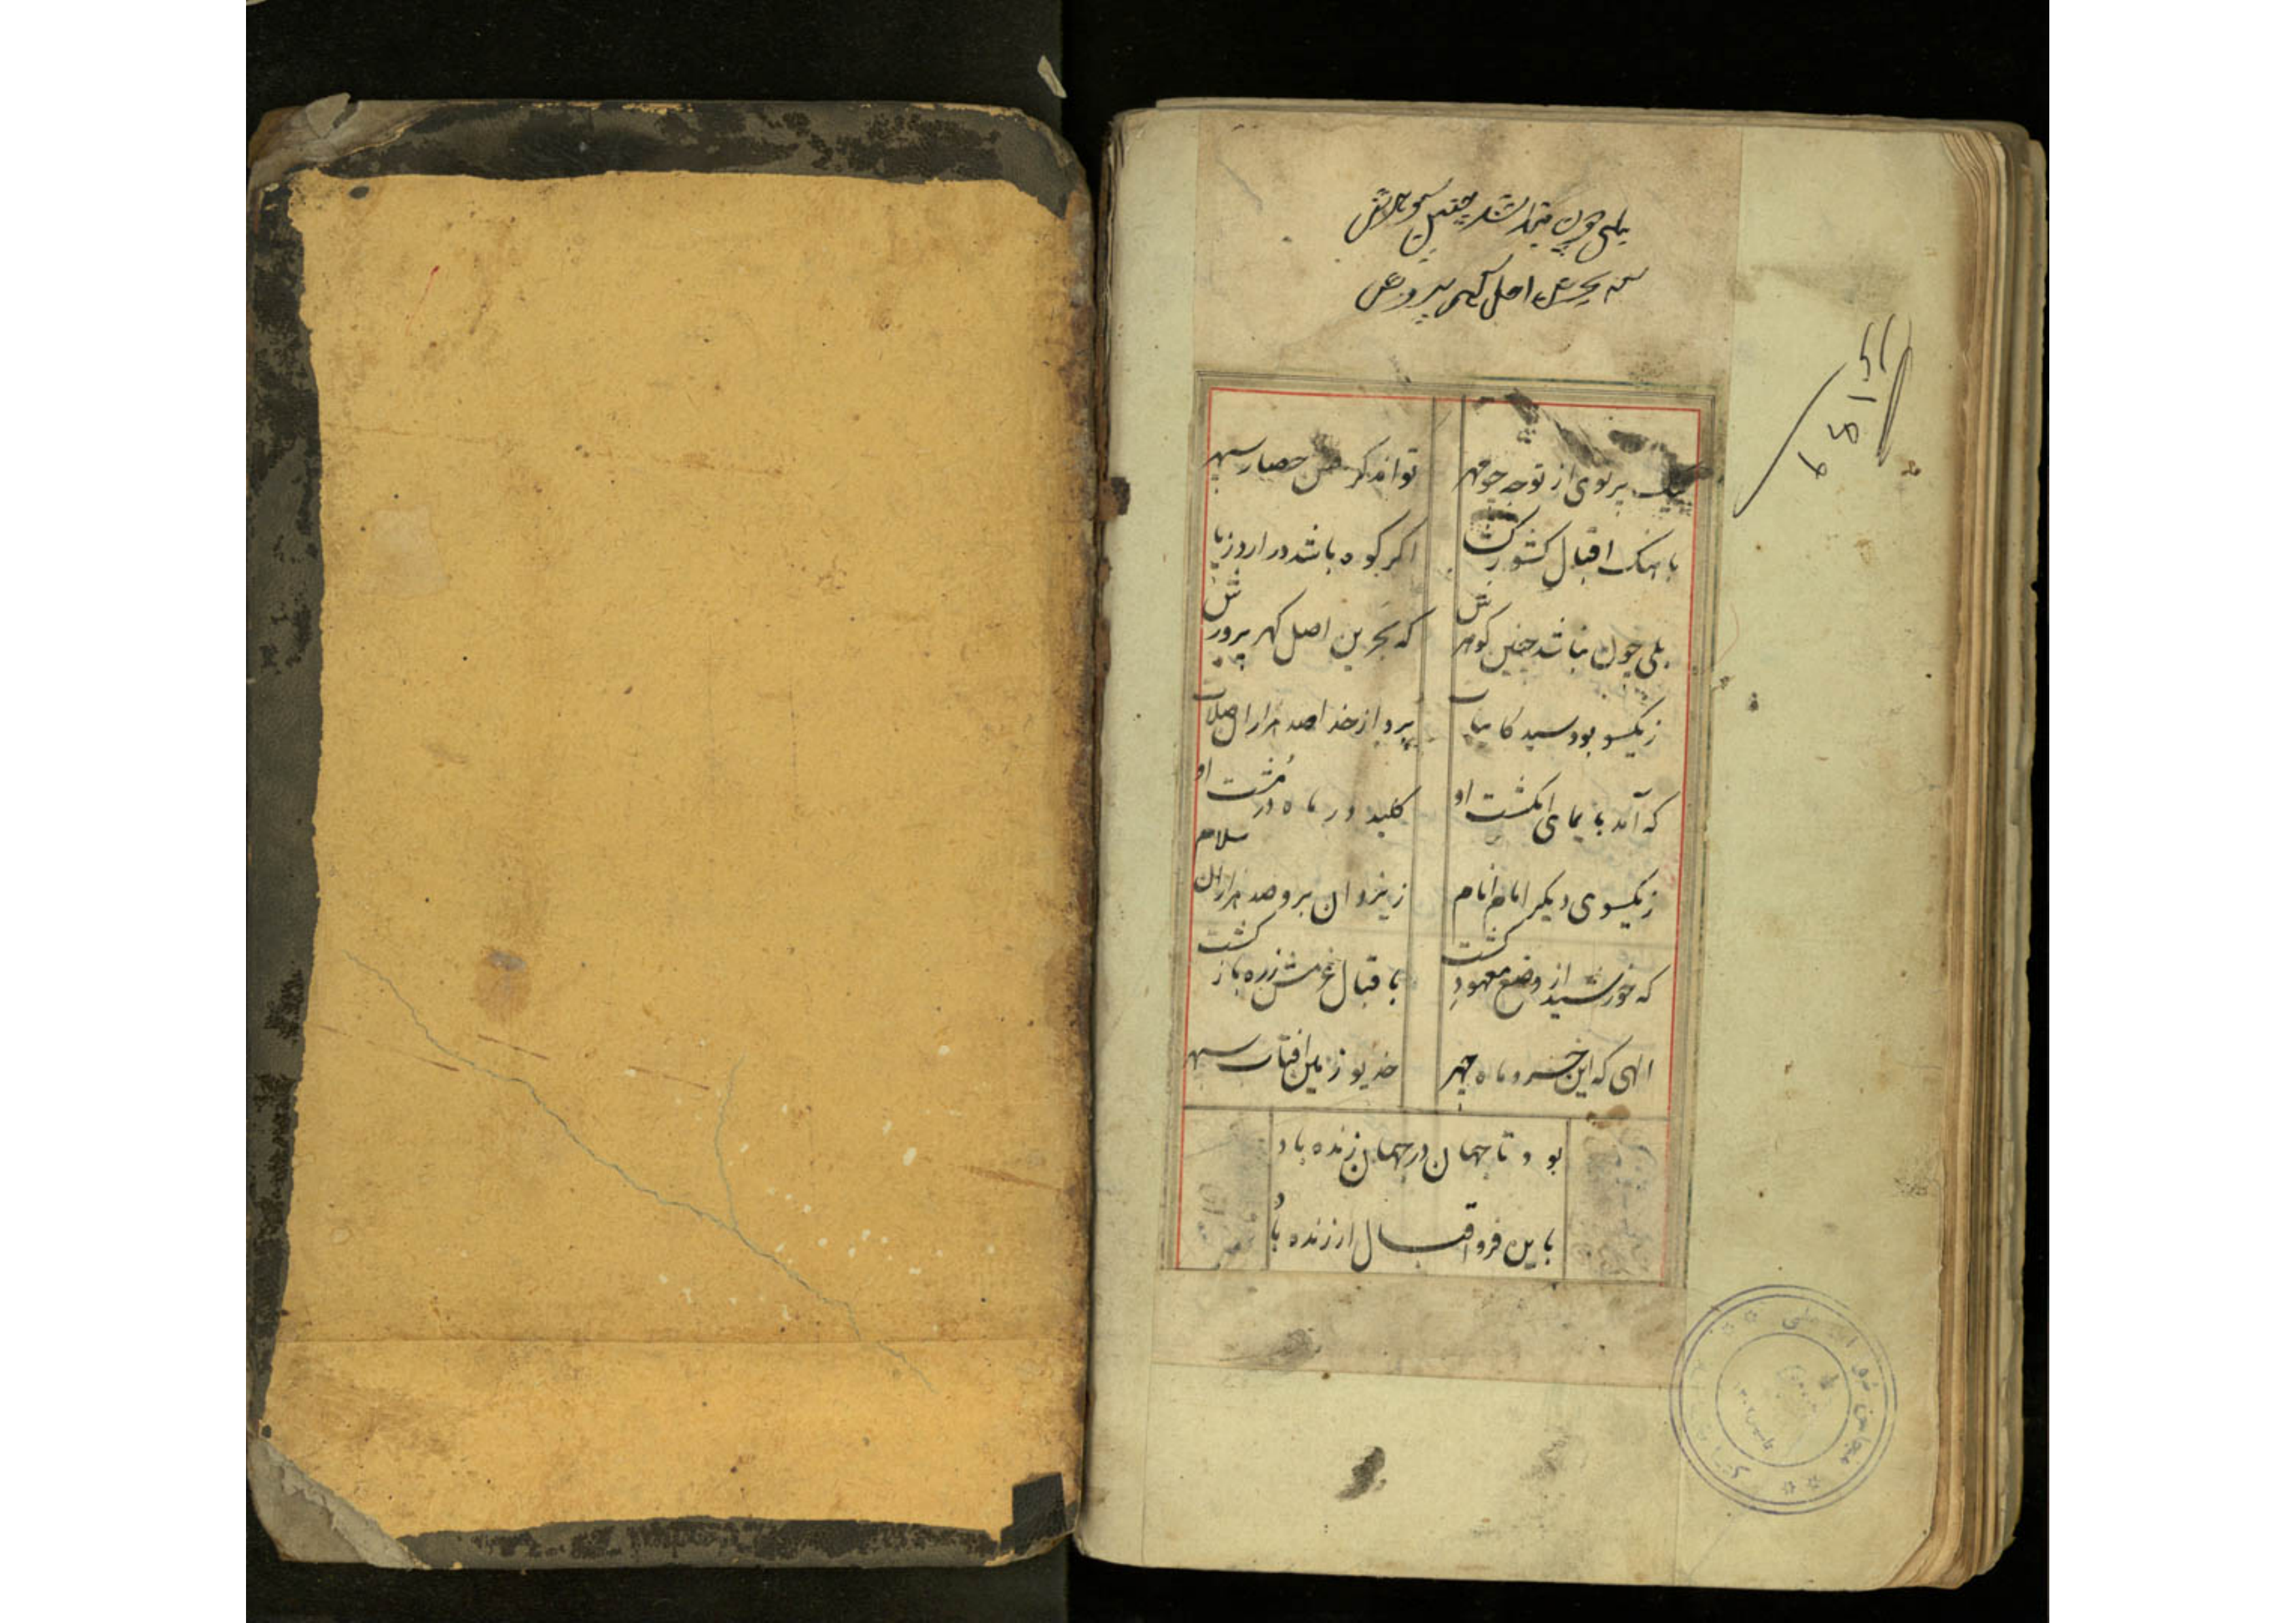 بلی چون نباشد چنین گوهرش
که بحرین اصل گهر پرورش
بیک پرتوی از توجه چو مهر
تواند کرفتن حصار سپهر
باهنک اقبال کشور کشا
اکر کوه باشد در ارد ز پا
بلی چون نباشد چنین کوهرش
که بحرین اصل کهر پرورش
ز یکسو بود سید کاینات
برو از خدا صد هزاران صلات
که آمد بایمای انکشت او
کلید در ماه در مُشت او
ز یکسوی دیکر امام انام
ز یزدان برو صد هزاران سلام
که خورشید از وضع معهود کشت
باقبال عزمش ز ره باز کشت
الهی که این خسرو ماه چهر
خدیو زمین افتاب سپهر
بود تا جهان در جهان زنده باد
باین فر و اقبال ارزنده باد